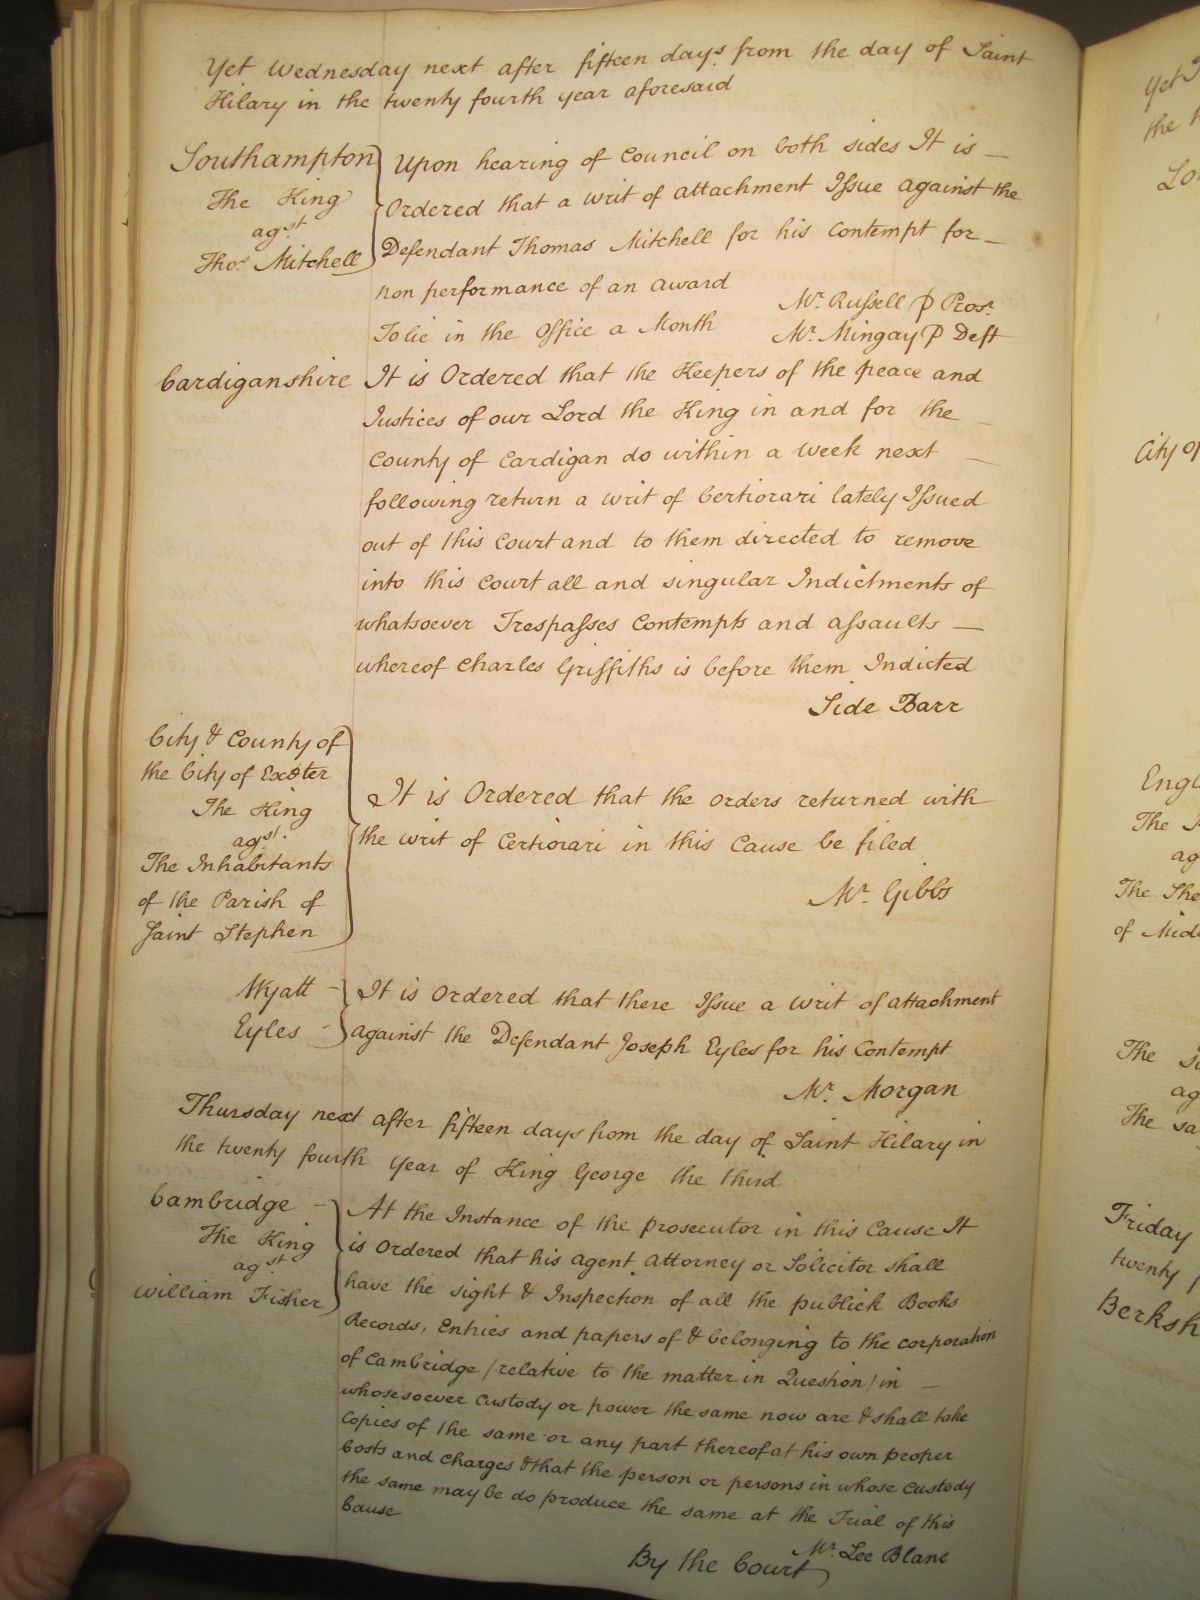 Yet Wednesday next after fifteen days from the day of Saint
Hilary in the twenty fourth year aforesaid
Southampton
The King
agst
Thos. Mitchell
Upon hearing of Council on both sides It is —
Ordered that a writ of attachment Issue against the
Defendant Thomas Mitchell for his Contempt for —
non performance of an award
To lie in the Office a Month
Mr. Russell P Prosr.
Mr. Mingay P Deft
Cardiganshire
It is Ordered that the Keepers of the peace and
Justices of our Lord the King in and for the —
County of Cardigan do within a Week next —
following return a writ of Certiorari lately Issued
out of this Court and to them directed to remove
into this Court all and singular Indictments of
whatsoever Trespasses Contempts and assaults —
whereof Charles Griffiths is before them Indicted
Side Barr
City & County of
the City of Exeter
The King
agst.
The Inhabitants
of the Parish of
Saint Stephen
It is Ordered that the orders returned with
the writ of Certiorari in this Cause be filed
Mr. Gibbs
Wyatt —
Eyles —
It is Ordered that there Issue a writ of attachment
against the Defendant Joseph Eyles for his Contempt
Mr. Morgan
Thursday next after fifteen days from the day of Saint Hilary in
the twenty fourth Year of King George the third
Cambridge —
The King
agst
William Fisher
At the Instance of the prosecutor in this Cause It
is Ordered that his agent Attorney or Solicitor shall
have the sight & Inspection of all the publick Books
Records, Entries and papers of & belonging to the corporation
of Cambridge /relative to the matter in Question/ in —
whosesoever Custody or power the same now are & shall take
Copies of the same or any part thereof at his own proper
Costs and Charges & that the person or persons in whose Custody
the same may be do produce the same at the Trial of this
Cause
Mr. Lee Blanc
By the Court
Yet
the
City of
Engl
The
ag
The She
of Midd
The
ag
The sa
Friday
twenty
Berksh